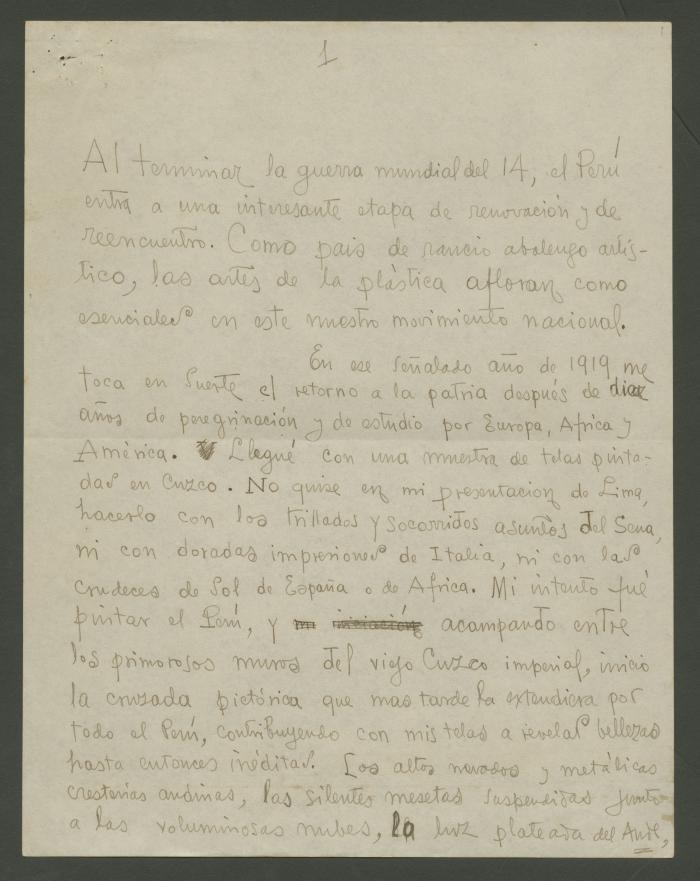 1
Al terminar la guerra mundial del 14, el Perú
entra a una interesante etapa de renovación y de
reencuentro. Como pais de rancio abolengo artís-
tico, las artes de la plástica afloran como
esenciales en este nuestro movimiento nacional.
En ese señalado año de 1919, me
toca en suerte el retorno a la patria después de diez
años de peregrinación y de estudio por Europa, Africa y
América. Llegué con una muestra de telas pinta-
das en Cuzco. No quise en mi presentacion de Lima,
hacerlo con los trillados y socorridos asuntos del Sena,
ni con doradas impresiones de Italia, ni con las
crudeces de Sol de España o de Africa. Mi intento fué
pintar el Perú, y mi iniciación acampando entre
los primorosos muros del viejo Cuzco imperial, inicio
la cruzada pictórica que mas tarde la extendiera por
todo el Perú, contribuyendo con mis telas a revelar bellezas
hasta entonces inéditas. Los altos nevados y metálicas
cresterias andinas, las silentes mesetas suspendidas junto
a las voluminosas nubes, la luz plateada del Ande,